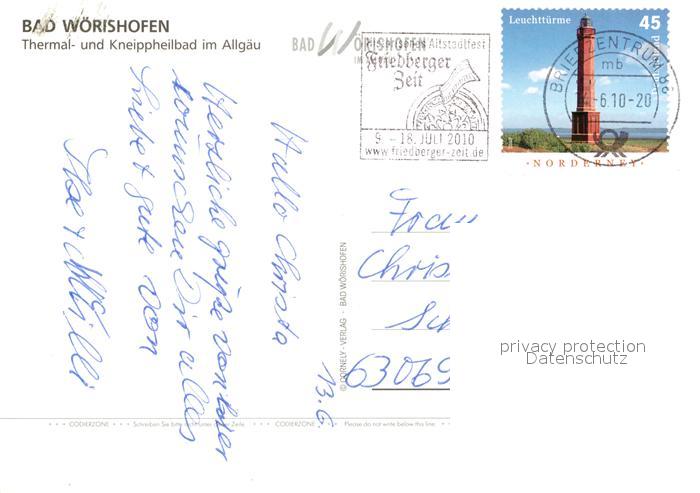 BAD WÖRISHOFEN
Thermal- und Kneippheilbad im Allgäu
BAD WÖRISHOFEN
Historisches Altstadtfest
Friedberger
Zeit
9. – 18. JULI 2010
www.friedberger-zeit.de
Leuchttürme
45
BRIEFZENTRUM 86
mb
-6.10-20
NORDERNEY
Hallo Christa
13.6.
Herzliche Grüße von hier
wünschen Dir alles
Liebe + gute von
Ilse + Willi
Frau
Chris
Sch
63069
© CORNELY-VERLAG · BAD WÖRISHOFEN
privacy protection
Datenschutz
CODIERZONE Schreiben Sie bitte nicht unter dieser Zeile. CODIERZONE Please do not write below this line.